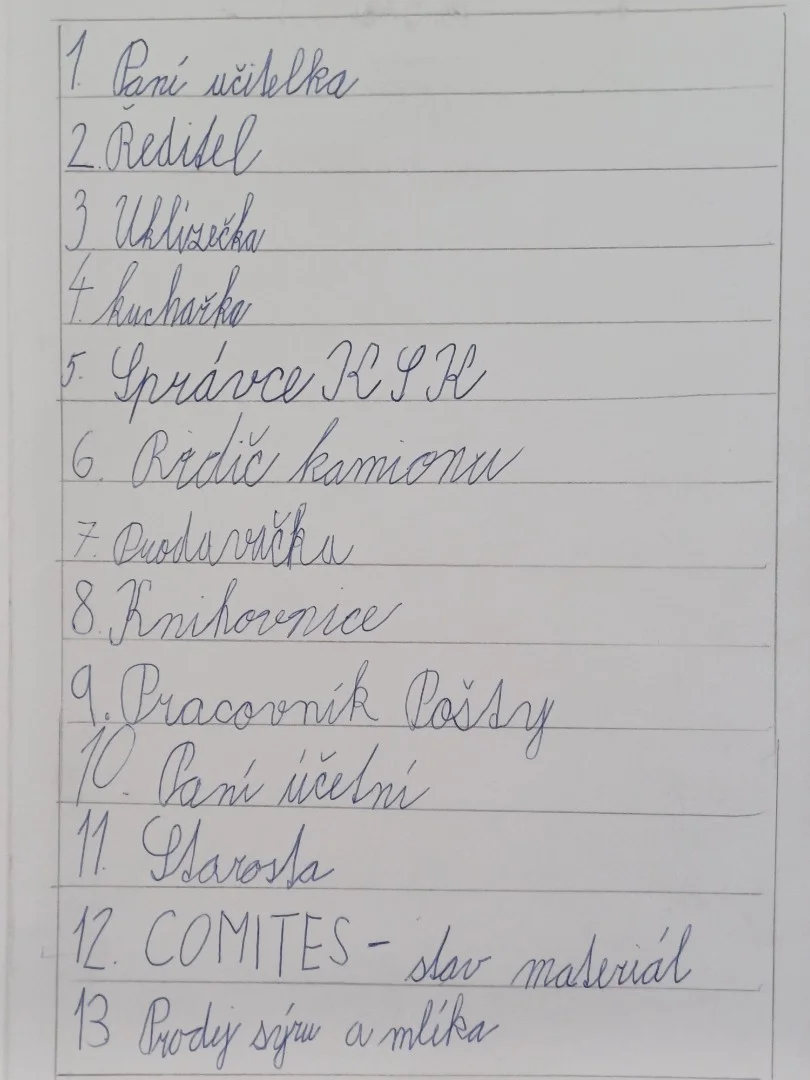 1. Paní učitelka
2. Ředitel
3 Uklizečka
4. kuchařka
5. Správce KSK
6. Řidič kamionu
7. Prodavačka
8. Knihovnice
9. Pracovník Pošty
10. Paní účetní
11. Starosta
12. COMITES - stav materiál
13 Prodej sýru a mlíka